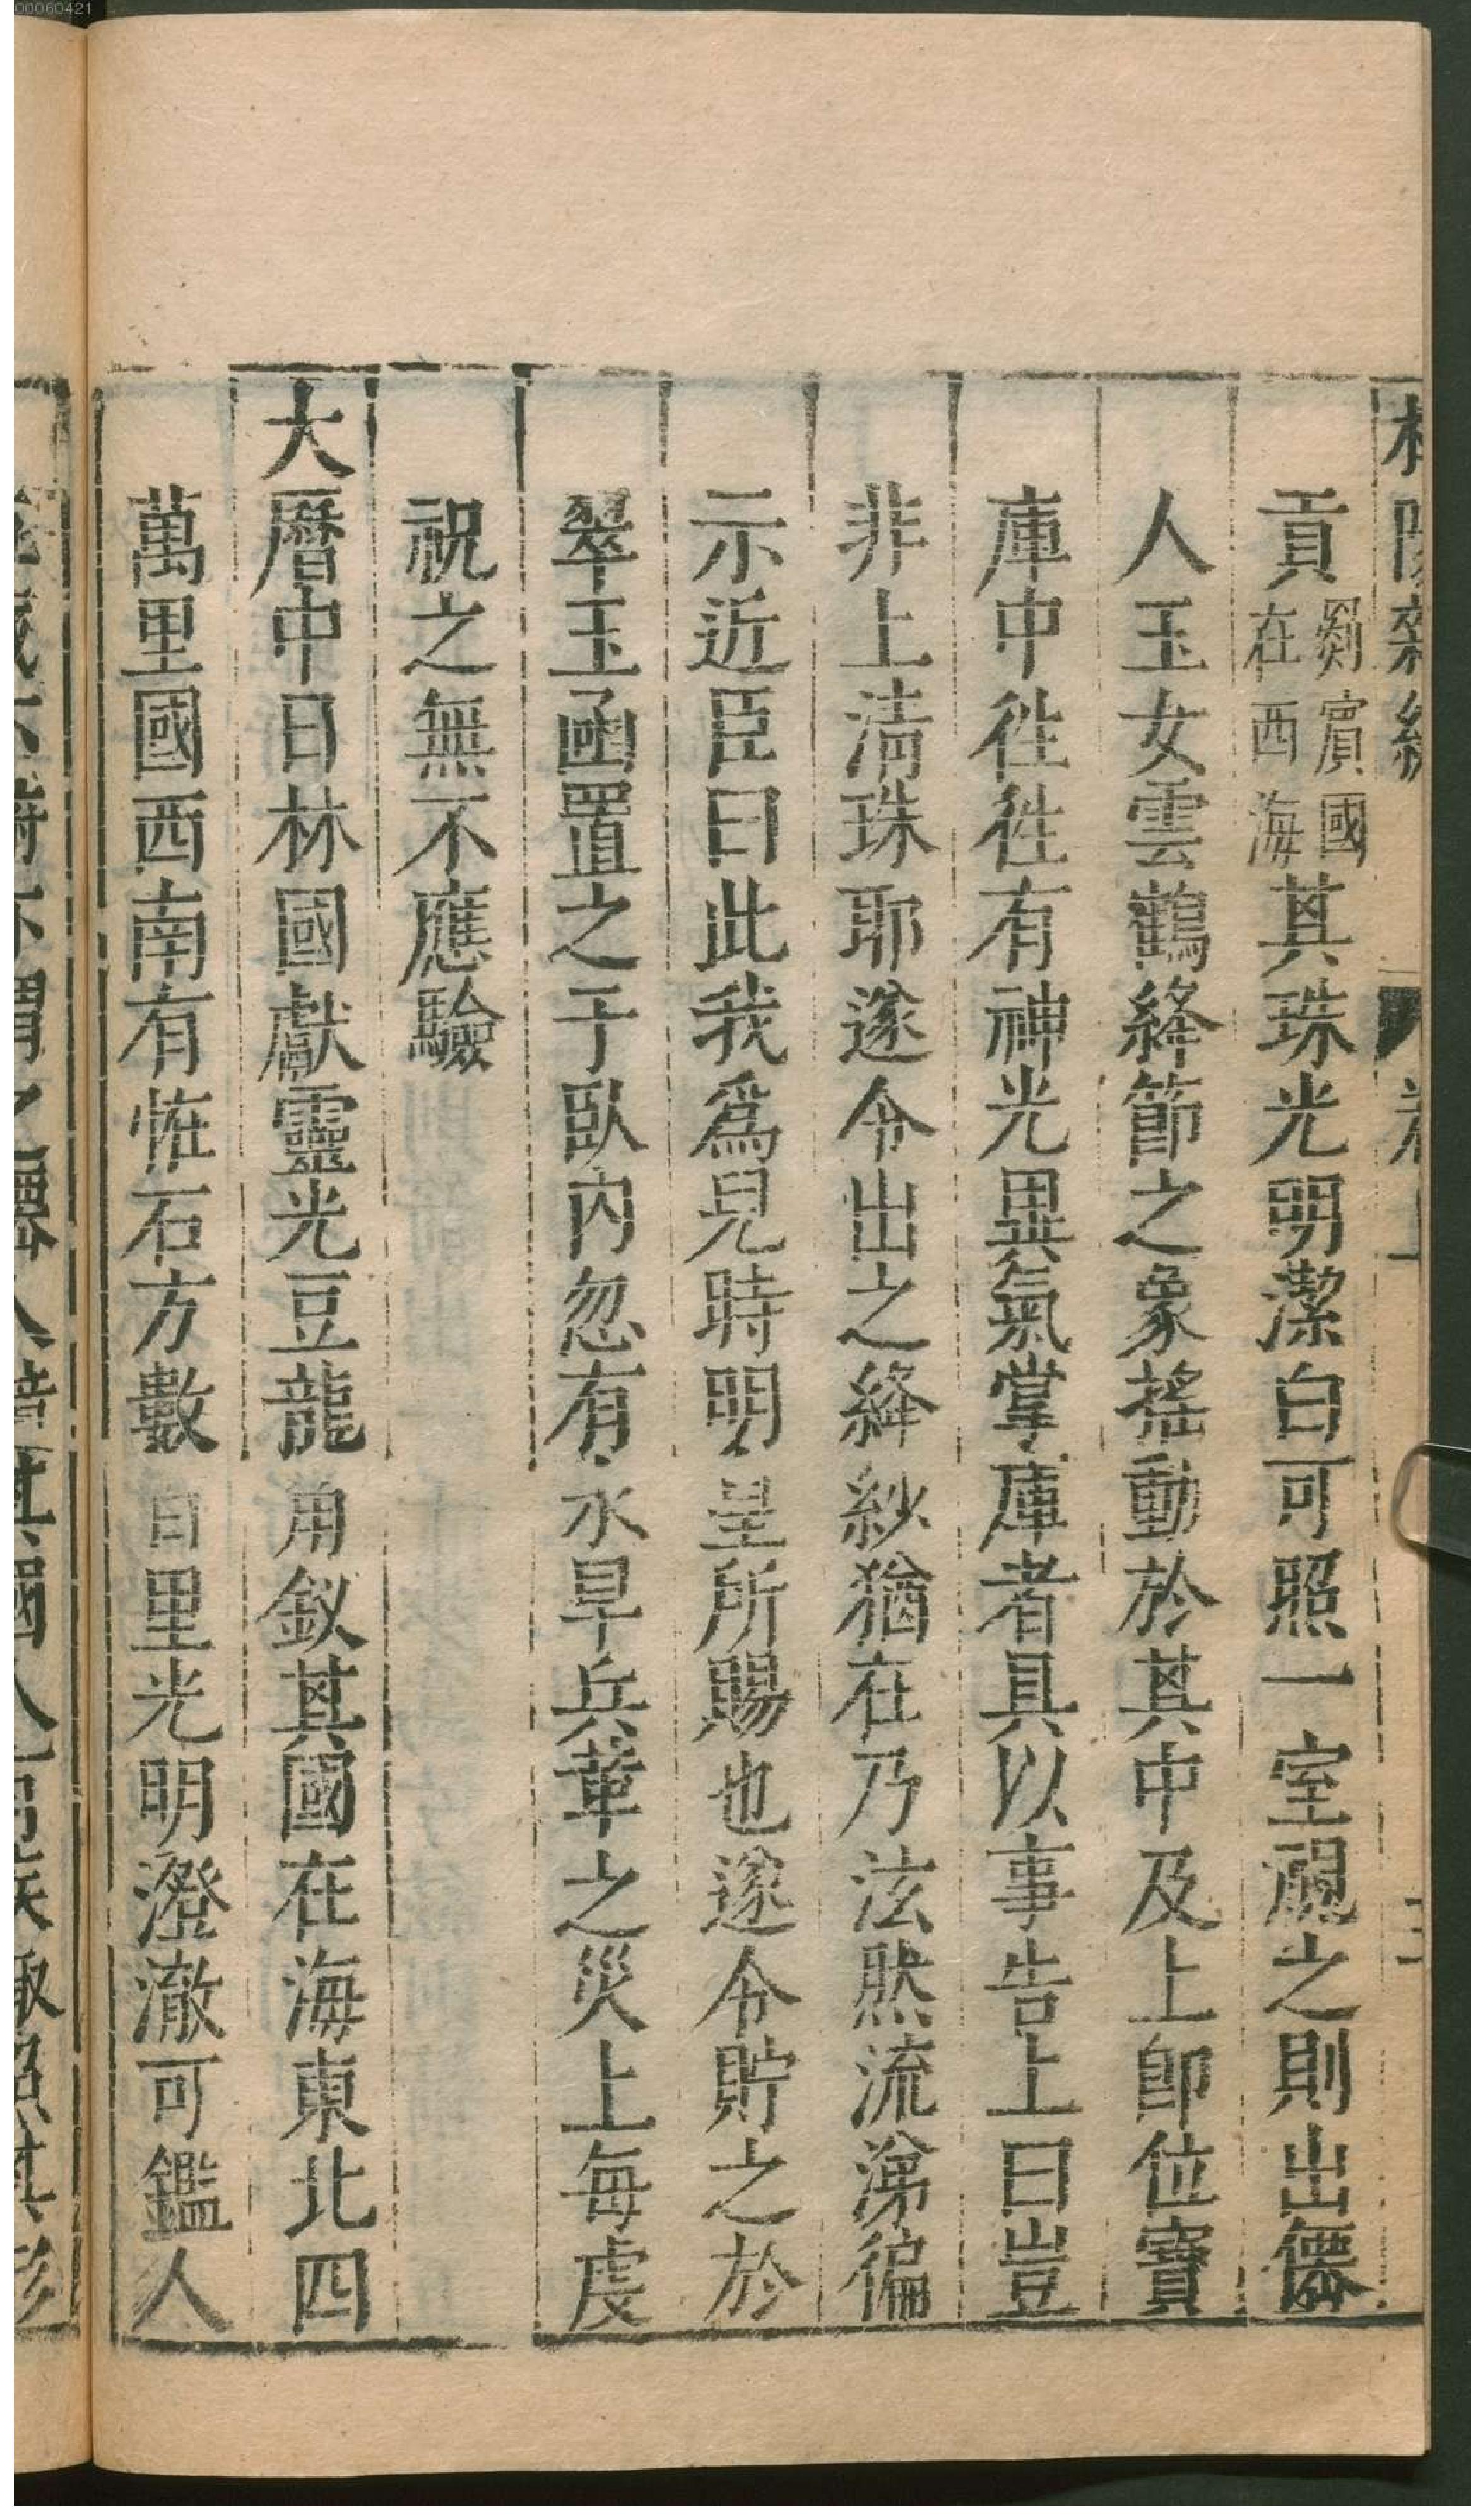 00060421
貢罽賓國在西海其珠光明潔白可照一室視之則出僊
人玉女雲鶴絳節之象搖動於其中及上卽位寶
庫中徃徃有神光異氣掌庫者具以事告上曰豈
非上淸珠耶遂令出之絳紗猶在乃泫然流涕徧
示近臣曰此我爲兒時明皇所賜也遂令貯之於
翠玉函置之于臥內忽有水旱兵革之災上每虔
祝之無不應驗
大曆中日林國獻靈光豆龍角釵其國在海東北四
萬里國西南有恠石方數百里光明澄澈可鑑人